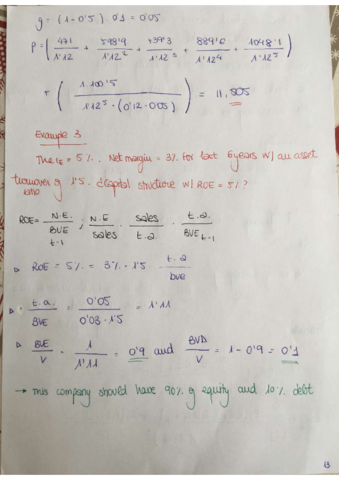 g = (1-0'5) · 0'1 = 0'05
P = ( 471 / 1'12 + 598'9 / 1'12² + / 1'12³ + 889'6 / 1'12⁴ + 1048'1 / 1'12⁵ )
+ ( 1.100'5 / 1'12⁵ · (0'12-0'05) ) = 11.805
Example 3
The = 5%. Net margin = 3% for last 6 years w/ an asset
turnover of 1'5. Capital structure w/ ROE = 5%?
ratio
ROE = N.E. / BVE t-1 = N.E / sales · sales / t.a. · t.a. / BVE t-1
▷ ROE = 5% = 3% · 1'5 · t.a / bve
▷ t.a. / BVE = 0'05 / 0'03 · 1'5 = 1'11
▷ BVE / V = 1 / 1'11 = 0'9 and BVD / V = 1 - 0'9 = 0'1
→ This company should have 90% of equity and 10% debt